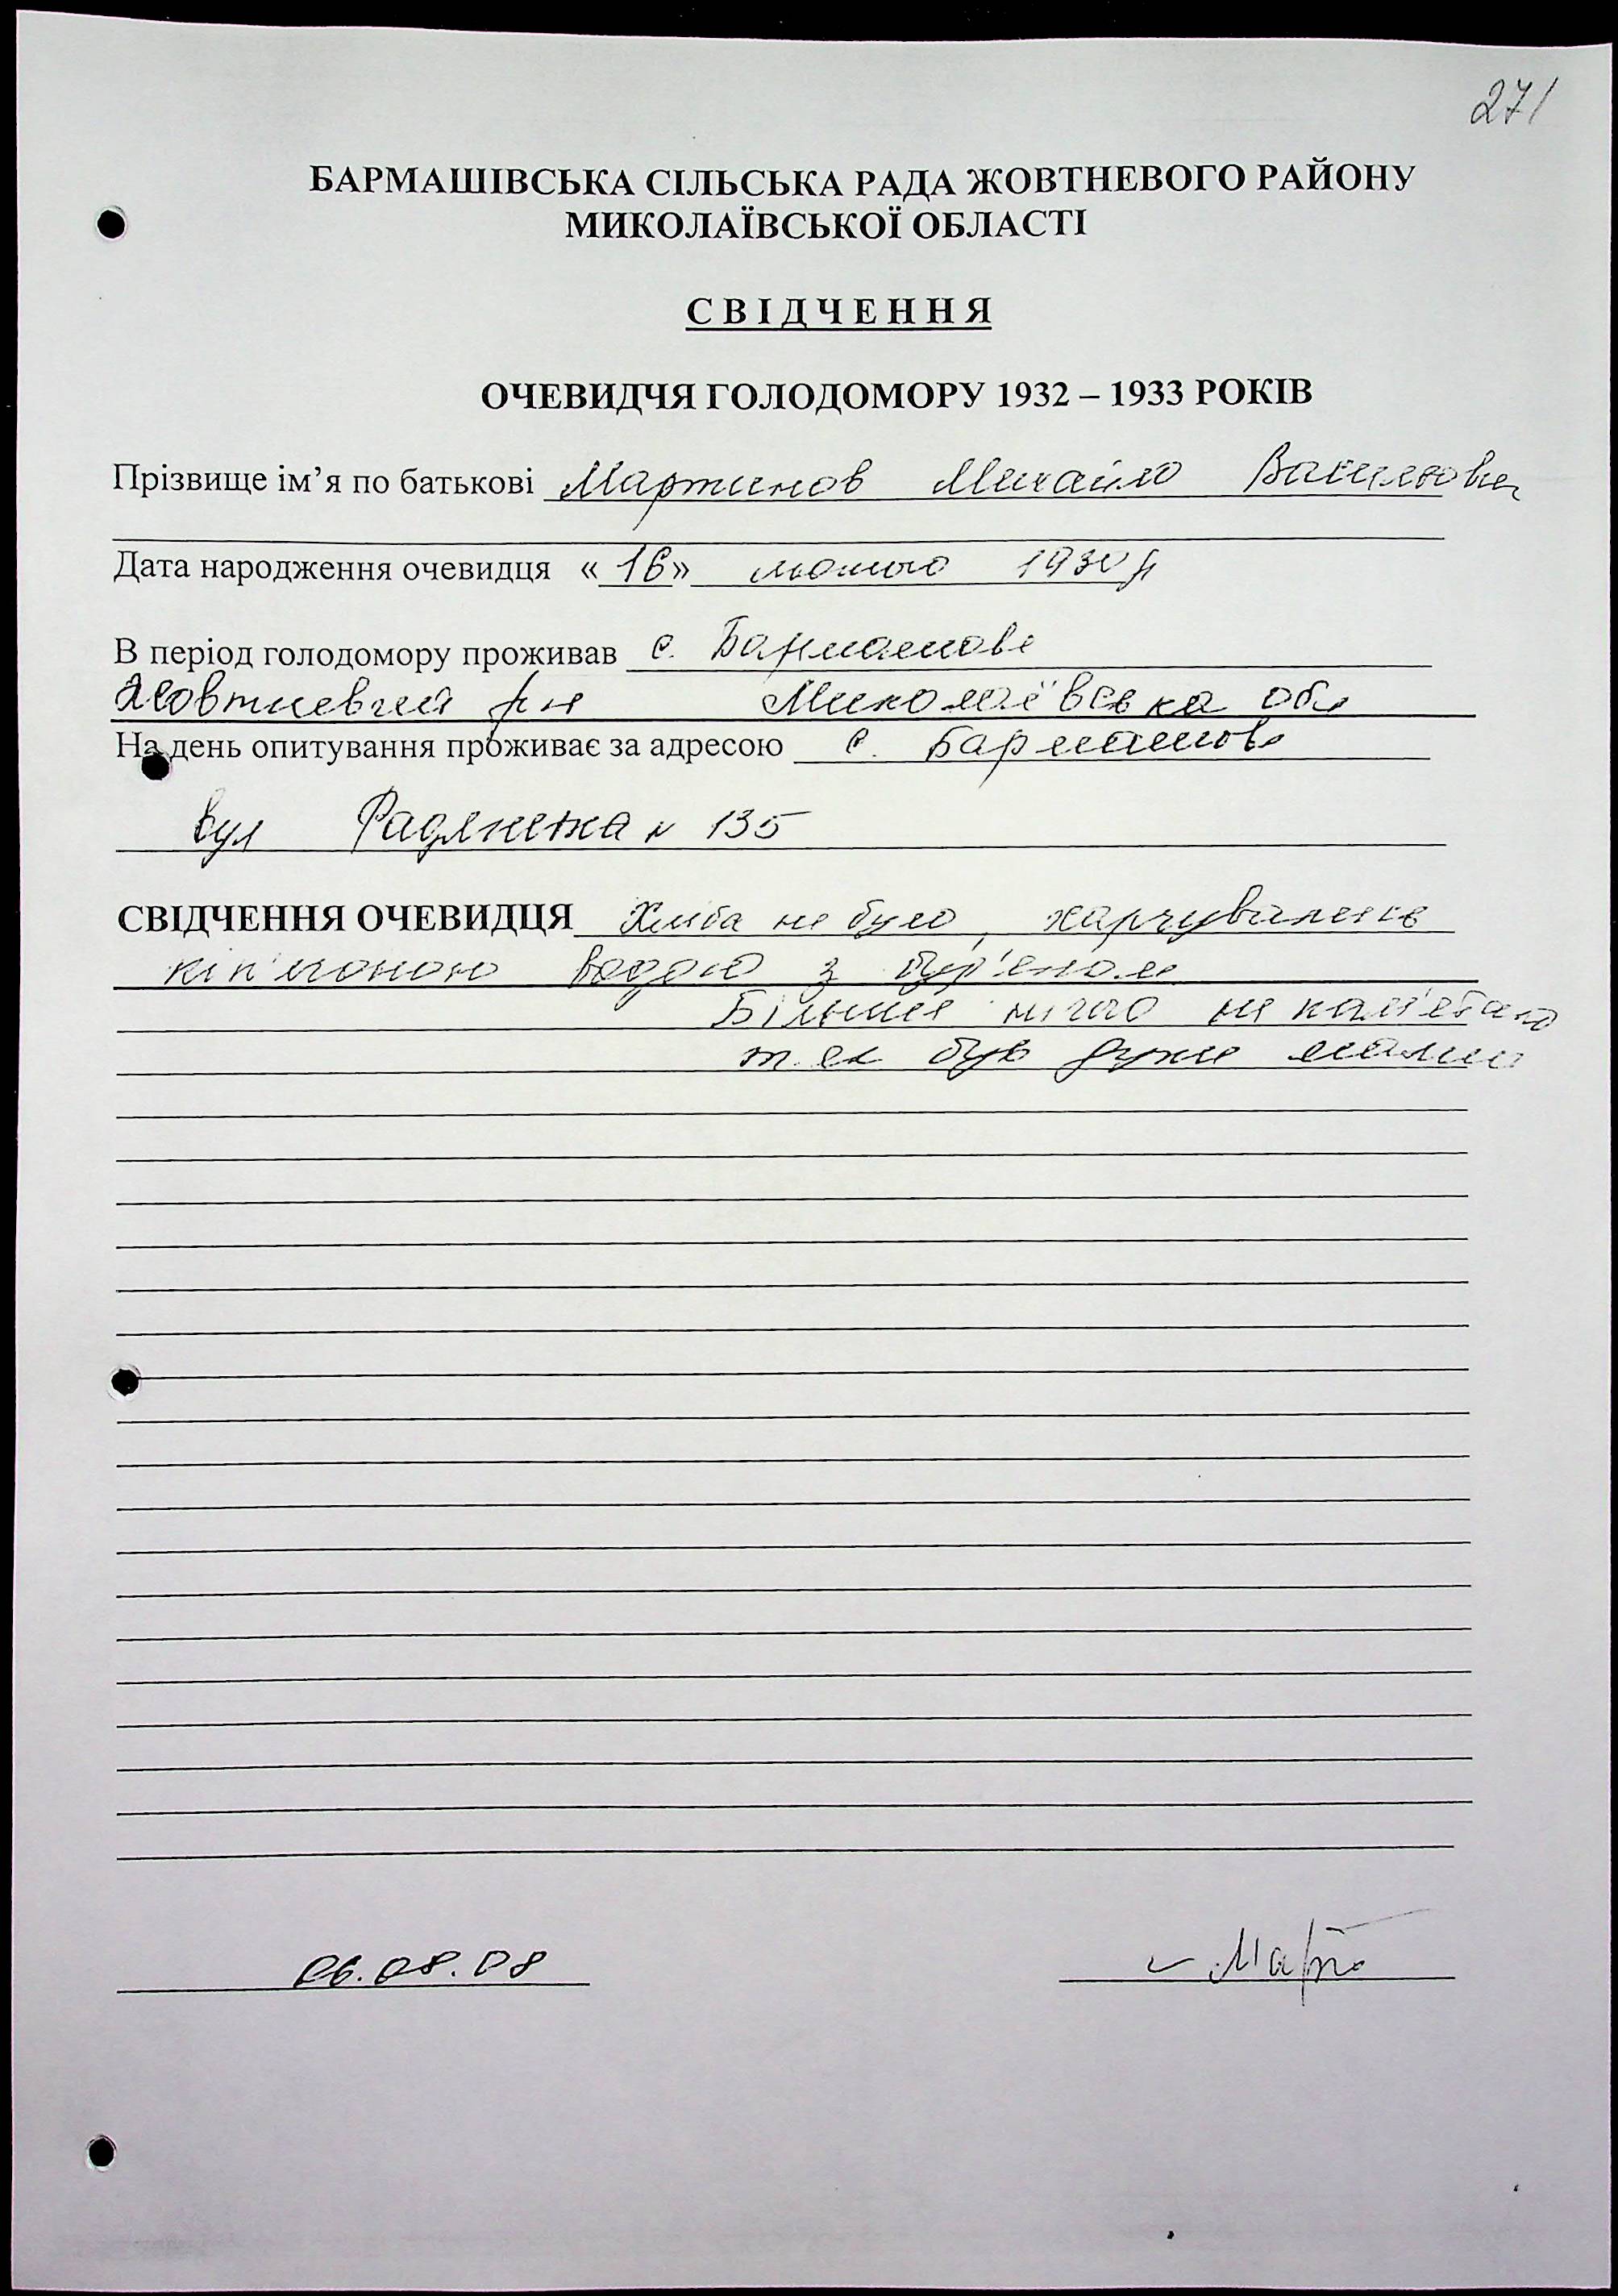 271
БАРМАШІВСЬКА СІЛЬСЬКА РАДА ЖОВТНЕВОГО РАЙОНУ
МИКОЛАЇВСЬКОЇ ОБЛАСТІ
СВІДЧЕННЯ
ОЧЕВИДЧЯ ГОЛОДОМОРУ 1932 – 1933 РОКІВ
Прізвище ім’я по батькові Мартинов Михайло
Дата народження очевидця «16» лютого 1930 р
В період голодомору проживав с. Бармашове
Жовтневий р-н Миколаївська обл
На день опитування проживає за адресою с. Бармашово
вул Радянська № 135
СВІДЧЕННЯ ОЧЕВИДЦЯ Хліба не було, харчувалися
кіп'яченою водою з бур'яном
Більше нічого не пам'ятаю
т. як був дуже малий
06.08.08